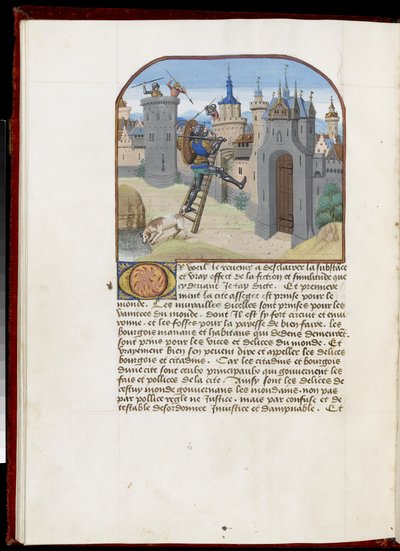 Or voeil ie revenir a desclairer la substāce
et vray effect de la fiction et similitude que
cy devant Je tay dicte. Et premiere
ment la cite assegee est prinse pour le
monde. Les murailles dicelles sont prinses pour les
vanitees du monde. dont Il est sy fort circuit et envi
ronne. et les fosses pour la paresse de bien faire. les
bourgois manans et habitans qui dedens demeurēt.
sont prins pour les vices et delices du monde. Et
vrayement bien sen peuent dire et appeller les delices
bourgois et citadins. Car les citadins et bourgois
dune cite sont ceulx principaulx qui gouvernent les
fais et pollices de la cite. Ainsy sont les delices de
cestuy monde gouvernans les mondains. non pas
par pollice regle ne Justice. mais par confuse et de
testable desordonnee Iniustice et dampnable. Et